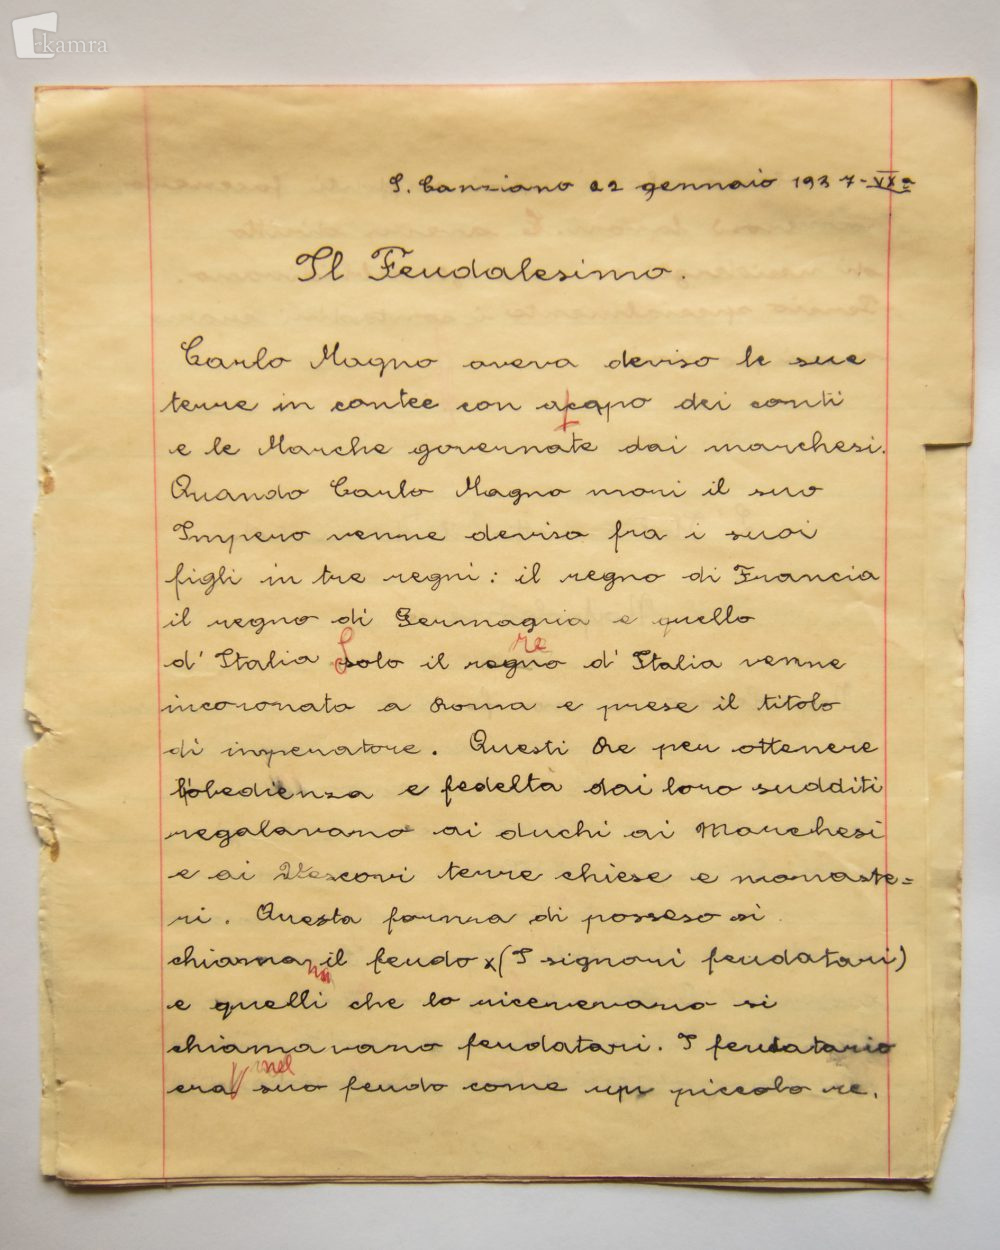 kamra
S. Canziano 22 gennaio 1937-XVª
Il Feudalesimo.
Carlo Magno aveva deviso le sue
terre in contee con a capo dei conti
e le Marche governate dai marchesi.
Quando Carlo Magno mori il suo
Impero venne deviso fra i suoi
figli in tre regni: il regno di Francia
il regno di Germania e quello
d'Italia Solo il regno re d'Italia venne
incoronata a Roma e prese il titolo
di imperatore. Questi Re per ottenere
l'obedienza e fedeltà dai loro sudditi
regalavano ai duchi ai Marchesi
e ai Vescovi terre chiese e monaste=
ri. Questa forma di posseso si
chiama il feudo x (I signori feudatari)
e quelli che lo ricevevano si
chiamavano feudatari. I feudatario
era nel suo feudo come un piccolo re.